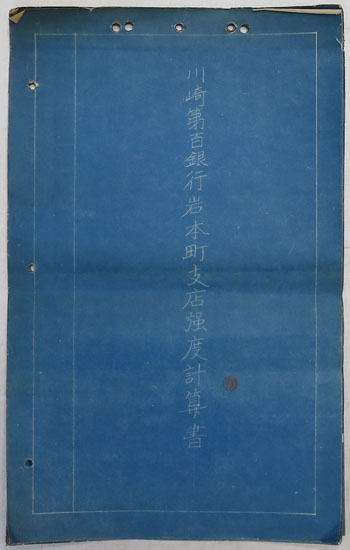 川崎第百銀行岩本町支店强度計算書